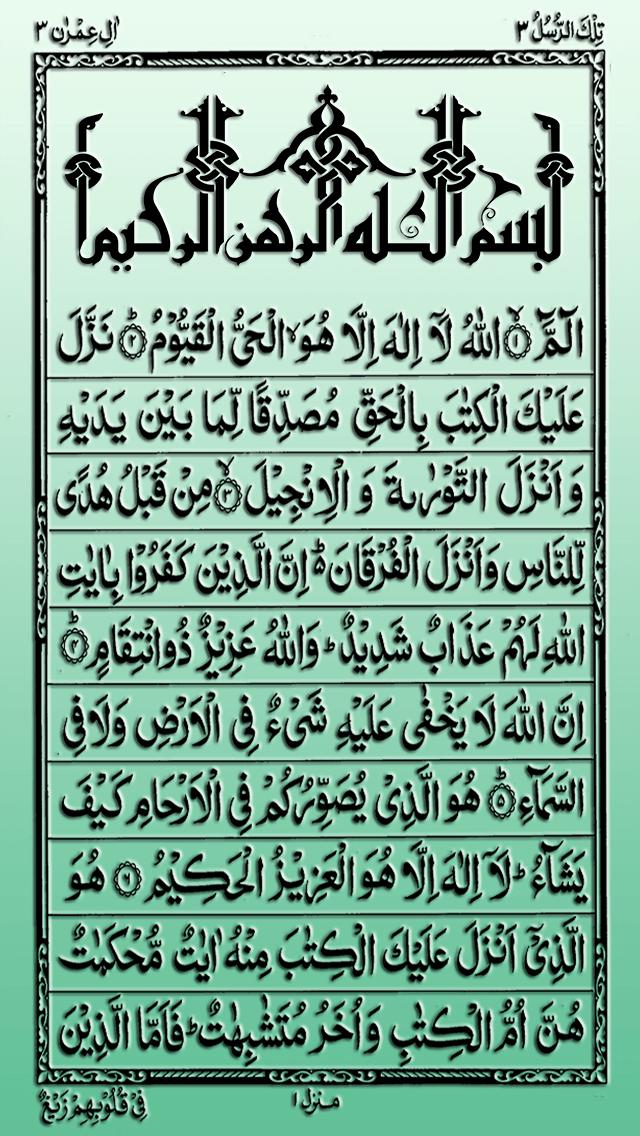 تِلْكَ الرُّسُلُ ٣
اٰلِ عِمْرٰن ٣
بسم الله الرحمن الرحيم
الٓمّٓ ۙ﴿۱﴾ اللّٰهُ لَاۤ اِلٰهَ اِلَّا هُوَ ۙ الْحَىُّ الْقَيُّوْمُ ؕ﴿۲﴾ نَزَّلَ
عَلَيْكَ الْكِتٰبَ بِالْحَقِّ مُصَدِّقًا لِّمَا بَيْنَ يَدَيْهِ
وَ اَنْزَلَ التَّوْرٰىةَ وَ الْاِنْجِيْلَ ۙ﴿۳﴾ مِنْ قَبْلُ هُدًى
لِّلنَّاسِ وَاَنْزَلَ الْفُرْقَانَ ؕ۬ اِنَّ الَّذِيْنَ كَفَرُوْا بِاٰيٰتِ
اللّٰهِ لَهُمْ عَذَابٌ شَدِيْدٌ ؕ وَاللّٰهُ عَزِيْزٌ ذُو انْتِقَامٍ ؕ﴿۴﴾
اِنَّ اللّٰهَ لَا يَخْفٰى عَلَيْهِ شَىْءٌ فِى الْاَرْضِ وَلَا فِى
السَّمَآءِ ؕ﴿۵﴾ هُوَ الَّذِىْ يُصَوِّرُكُمْ فِى الْاَرْحَامِ كَيْفَ
يَشَآءُ ؕ لَاۤ اِلٰهَ اِلَّا هُوَ الْعَزِيْزُ الْحَكِيْمُ ﴿۶﴾ هُوَ
الَّذِىْۤ اَنْزَلَ عَلَيْكَ الْكِتٰبَ مِنْهُ اٰيٰتٌ مُّحْكَمٰتٌ
هُنَّ اُمُّ الْكِتٰبِ وَ اُخَرُ مُتَشٰبِهٰتٌ ؕ فَاَمَّا الَّذِيْنَ
منزل ١
فِىْ قُلُوْبِهِمْ زَيْغٌ